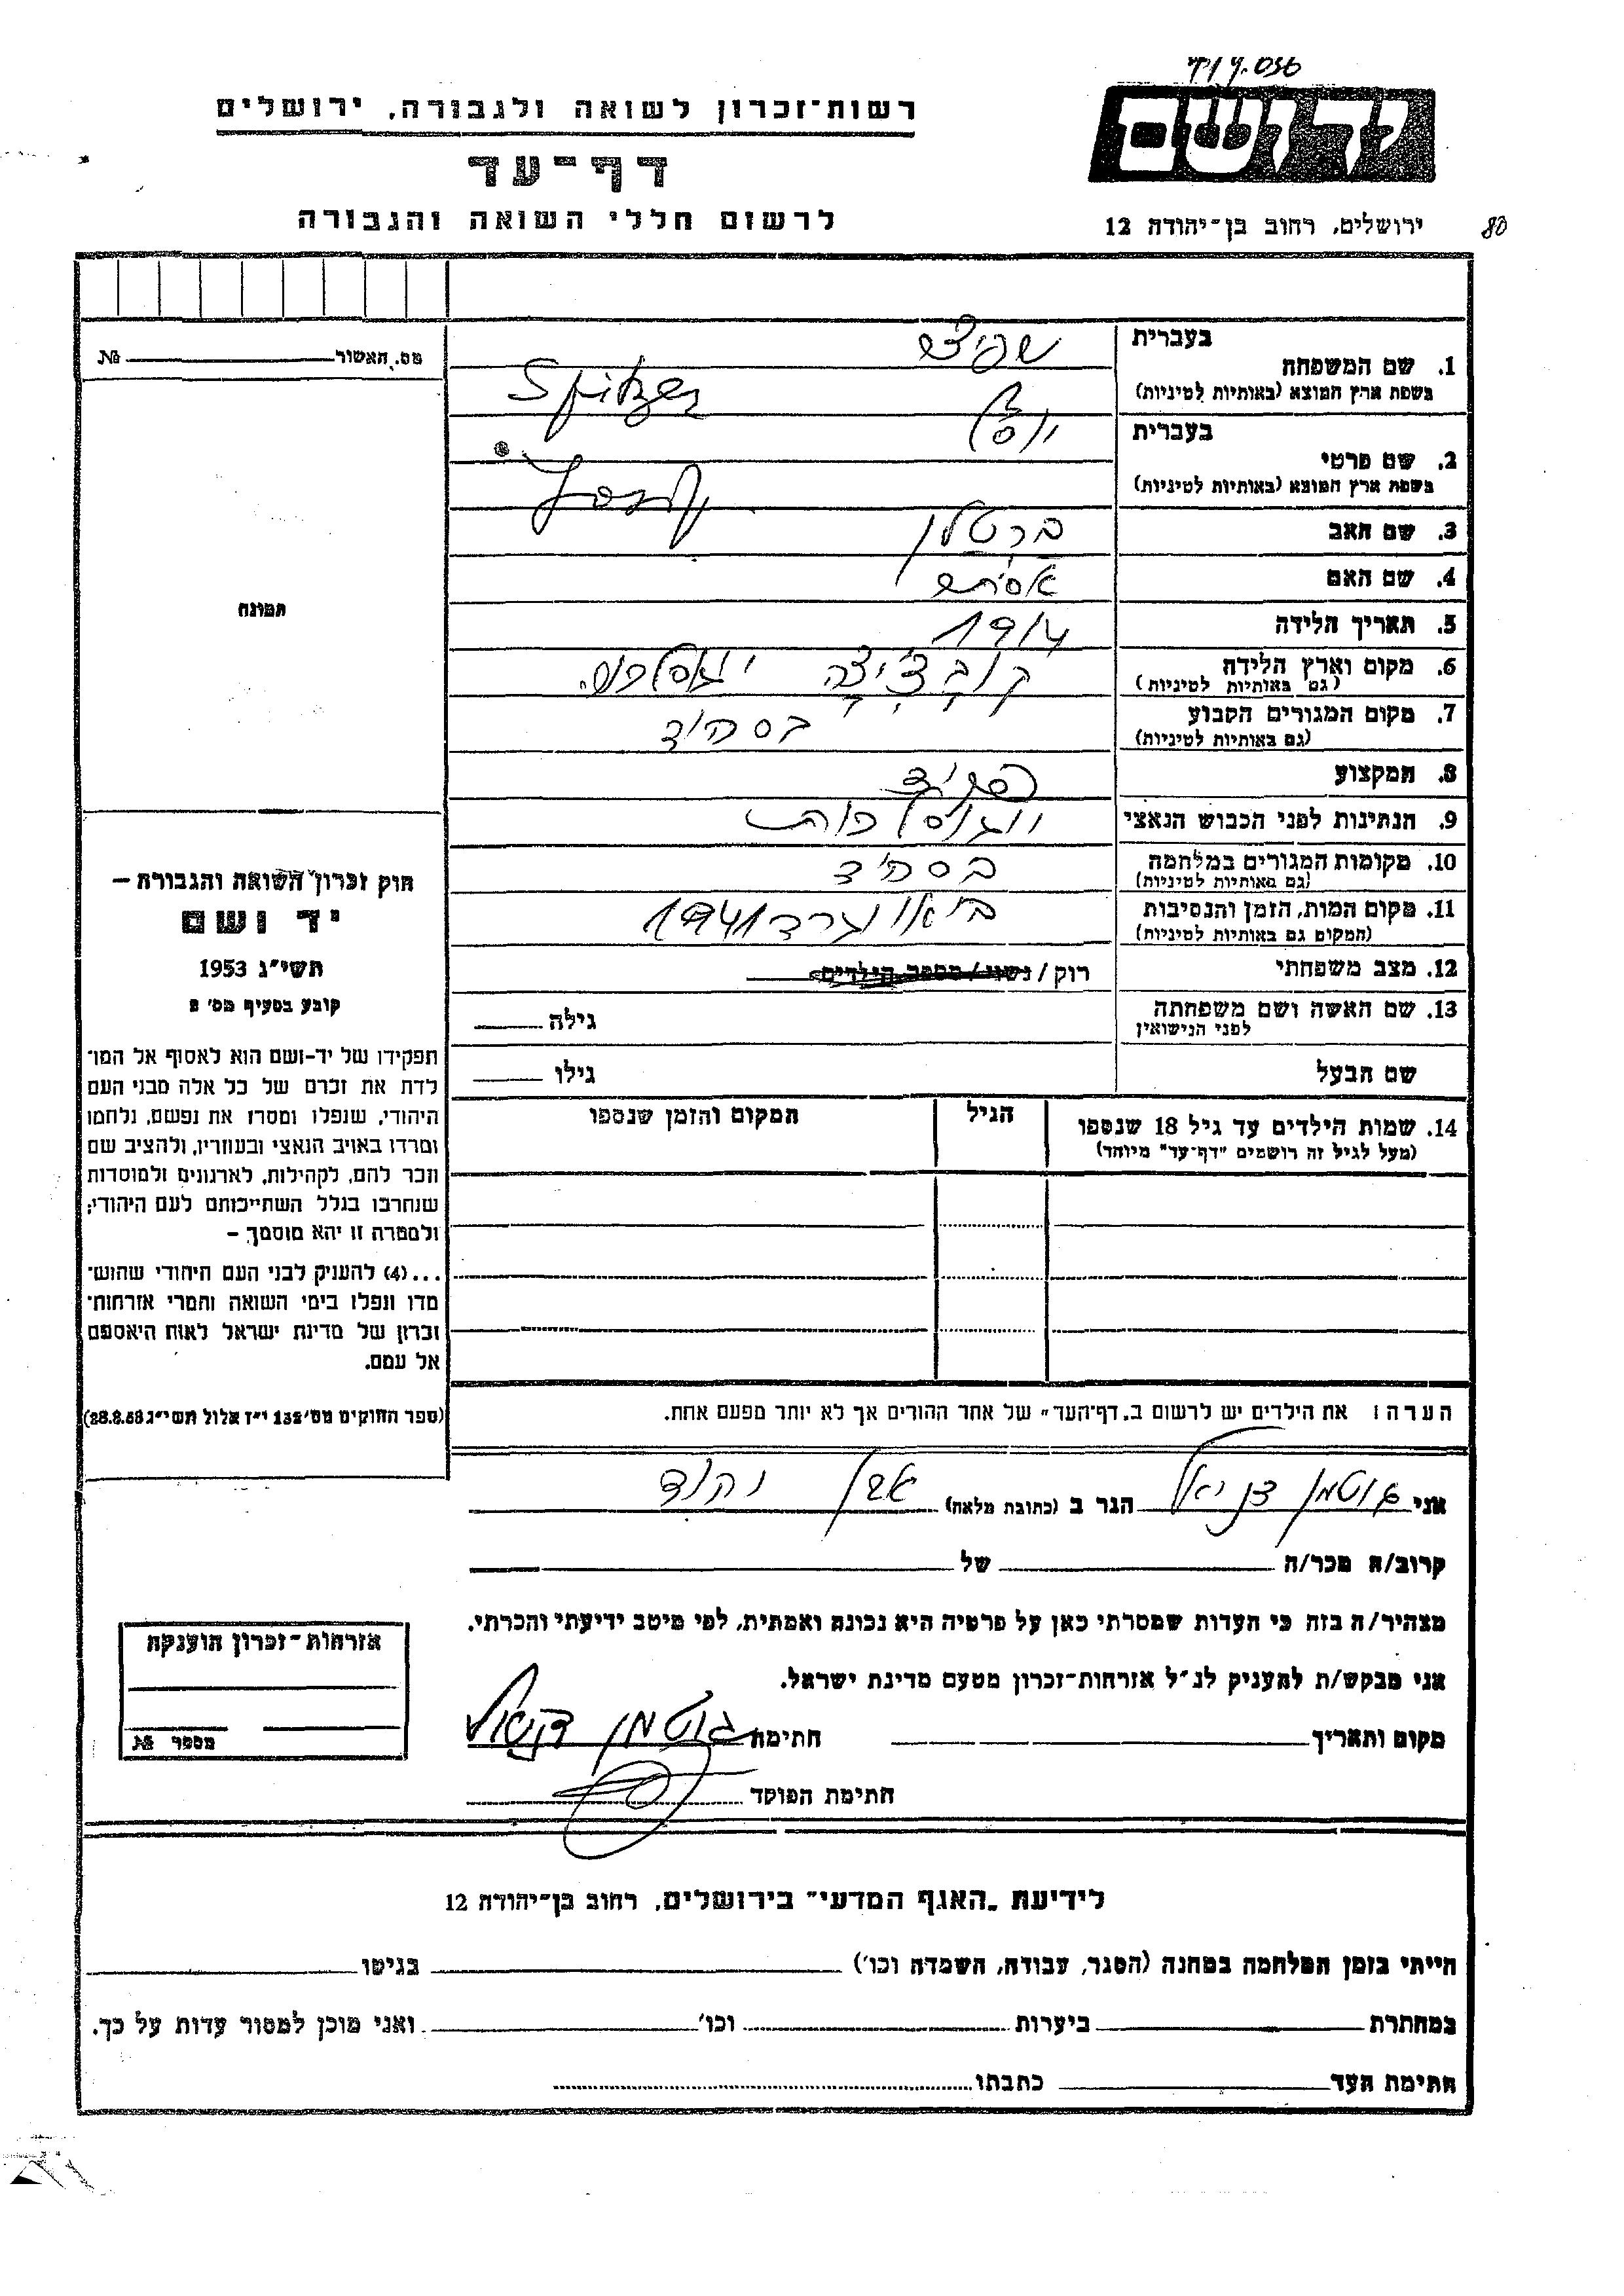 יד ושם
רשות־זכרון לשואה ולגבורה, ירושלים
דף־עד
לרשום חללי השואה והגבורה
ירושלים, רחוב בן־יהודה 12
80
מס. האשור №
תמונה
בעברית
1. שם המשפחה
בשפת ארץ המוצא (באותיות לטיניות)
Spitzer
בעברית
יוסף
2. שם פרטי
בשפת ארץ המוצא (באותיות לטיניות)
3. שם האב
4. שם האם
5. תאריך הלידה 1914
6. מקום וארץ הלידה
(גם באותיות לטיניות)
7. מקום המגורים הקבוע
(גם באותיות לטיניות)
8. המקצוע
9. הנתינות לפני הכבוש הנאצי
10. מקומות המגורים במלחמה
(גם באותיות לטיניות)
11. מקום המות, הזמן והנסיבות 1941
(המקום גם באותיות לטיניות)
12. מצב משפחתי רוק / נשוי / מספר הילדים
13. שם האשה ושם משפחתה גילה
לפני הנישואין
שם הבעל גילו
14. שמות הילדים עד גיל 18 שנספו הגיל המקום והזמן שנספו
(מעל לגיל זה רושמים "דף־עד" מיוחד)
חוק זכרון השואה והגבורה –
יד ושם
תשי"ג 1953
קובע בסעיף מס' 2
תפקידו של יד-ושם הוא לאסוף אל המו־
לדת את זכרם של כל אלה מבני העם
היהודי, שנפלו ומסרו את נפשם, נלחמו
ומרדו באויב הנאצי ובעוזריו, ולהציב שם
וזכר להם, לקהילות, לארגונים ולמוסדות
שנחרבו בגלל השתייכותם לעם היהודי;
ולמטרה זו יהא מוסמך –
...(4) להעניק לבני העם היהודי שהוש־
מדו ונפלו בימי השואה והמרי אזרחות־
זכרון של מדינת ישראל לאות היאספם
אל עמם.
(ספר החוקים מס' 132 י"ז אלול תשי"ג 28.8.53)
הערה: את הילדים יש לרשום ב„דף־העד" של אחד ההורים אך לא יותר מפעם אחת.
אני גוטמן דניאל הגר ב (כתובת מלאה) אבן יהודה
קרוב/ה מכר/ה של
מצהיר/ה בזה כי העדות שמסרתי כאן על פרטיה היא נכונה ואמתית, לפי מיטב ידיעתי והכרתי.
אני מבקש/ת להעניק לנ"ל אזרחות-זכרון מטעם מדינת ישראל.
מקום ותאריך חתימה גוטמן דניאל
חתימת הפוקד
אזרחות-זכרון הוענקה
מספר №
לידיעת „האגף המדעי" בירושלים, רחוב בן-יהודה 12
הייתי בזמן המלחמה במחנה (הסגר, עבודה, השמדה וכו') בגיטו
במחתרת ביערות וכו' ואני מוכן למסור עדות על כך.
חתימת העד כתבתו